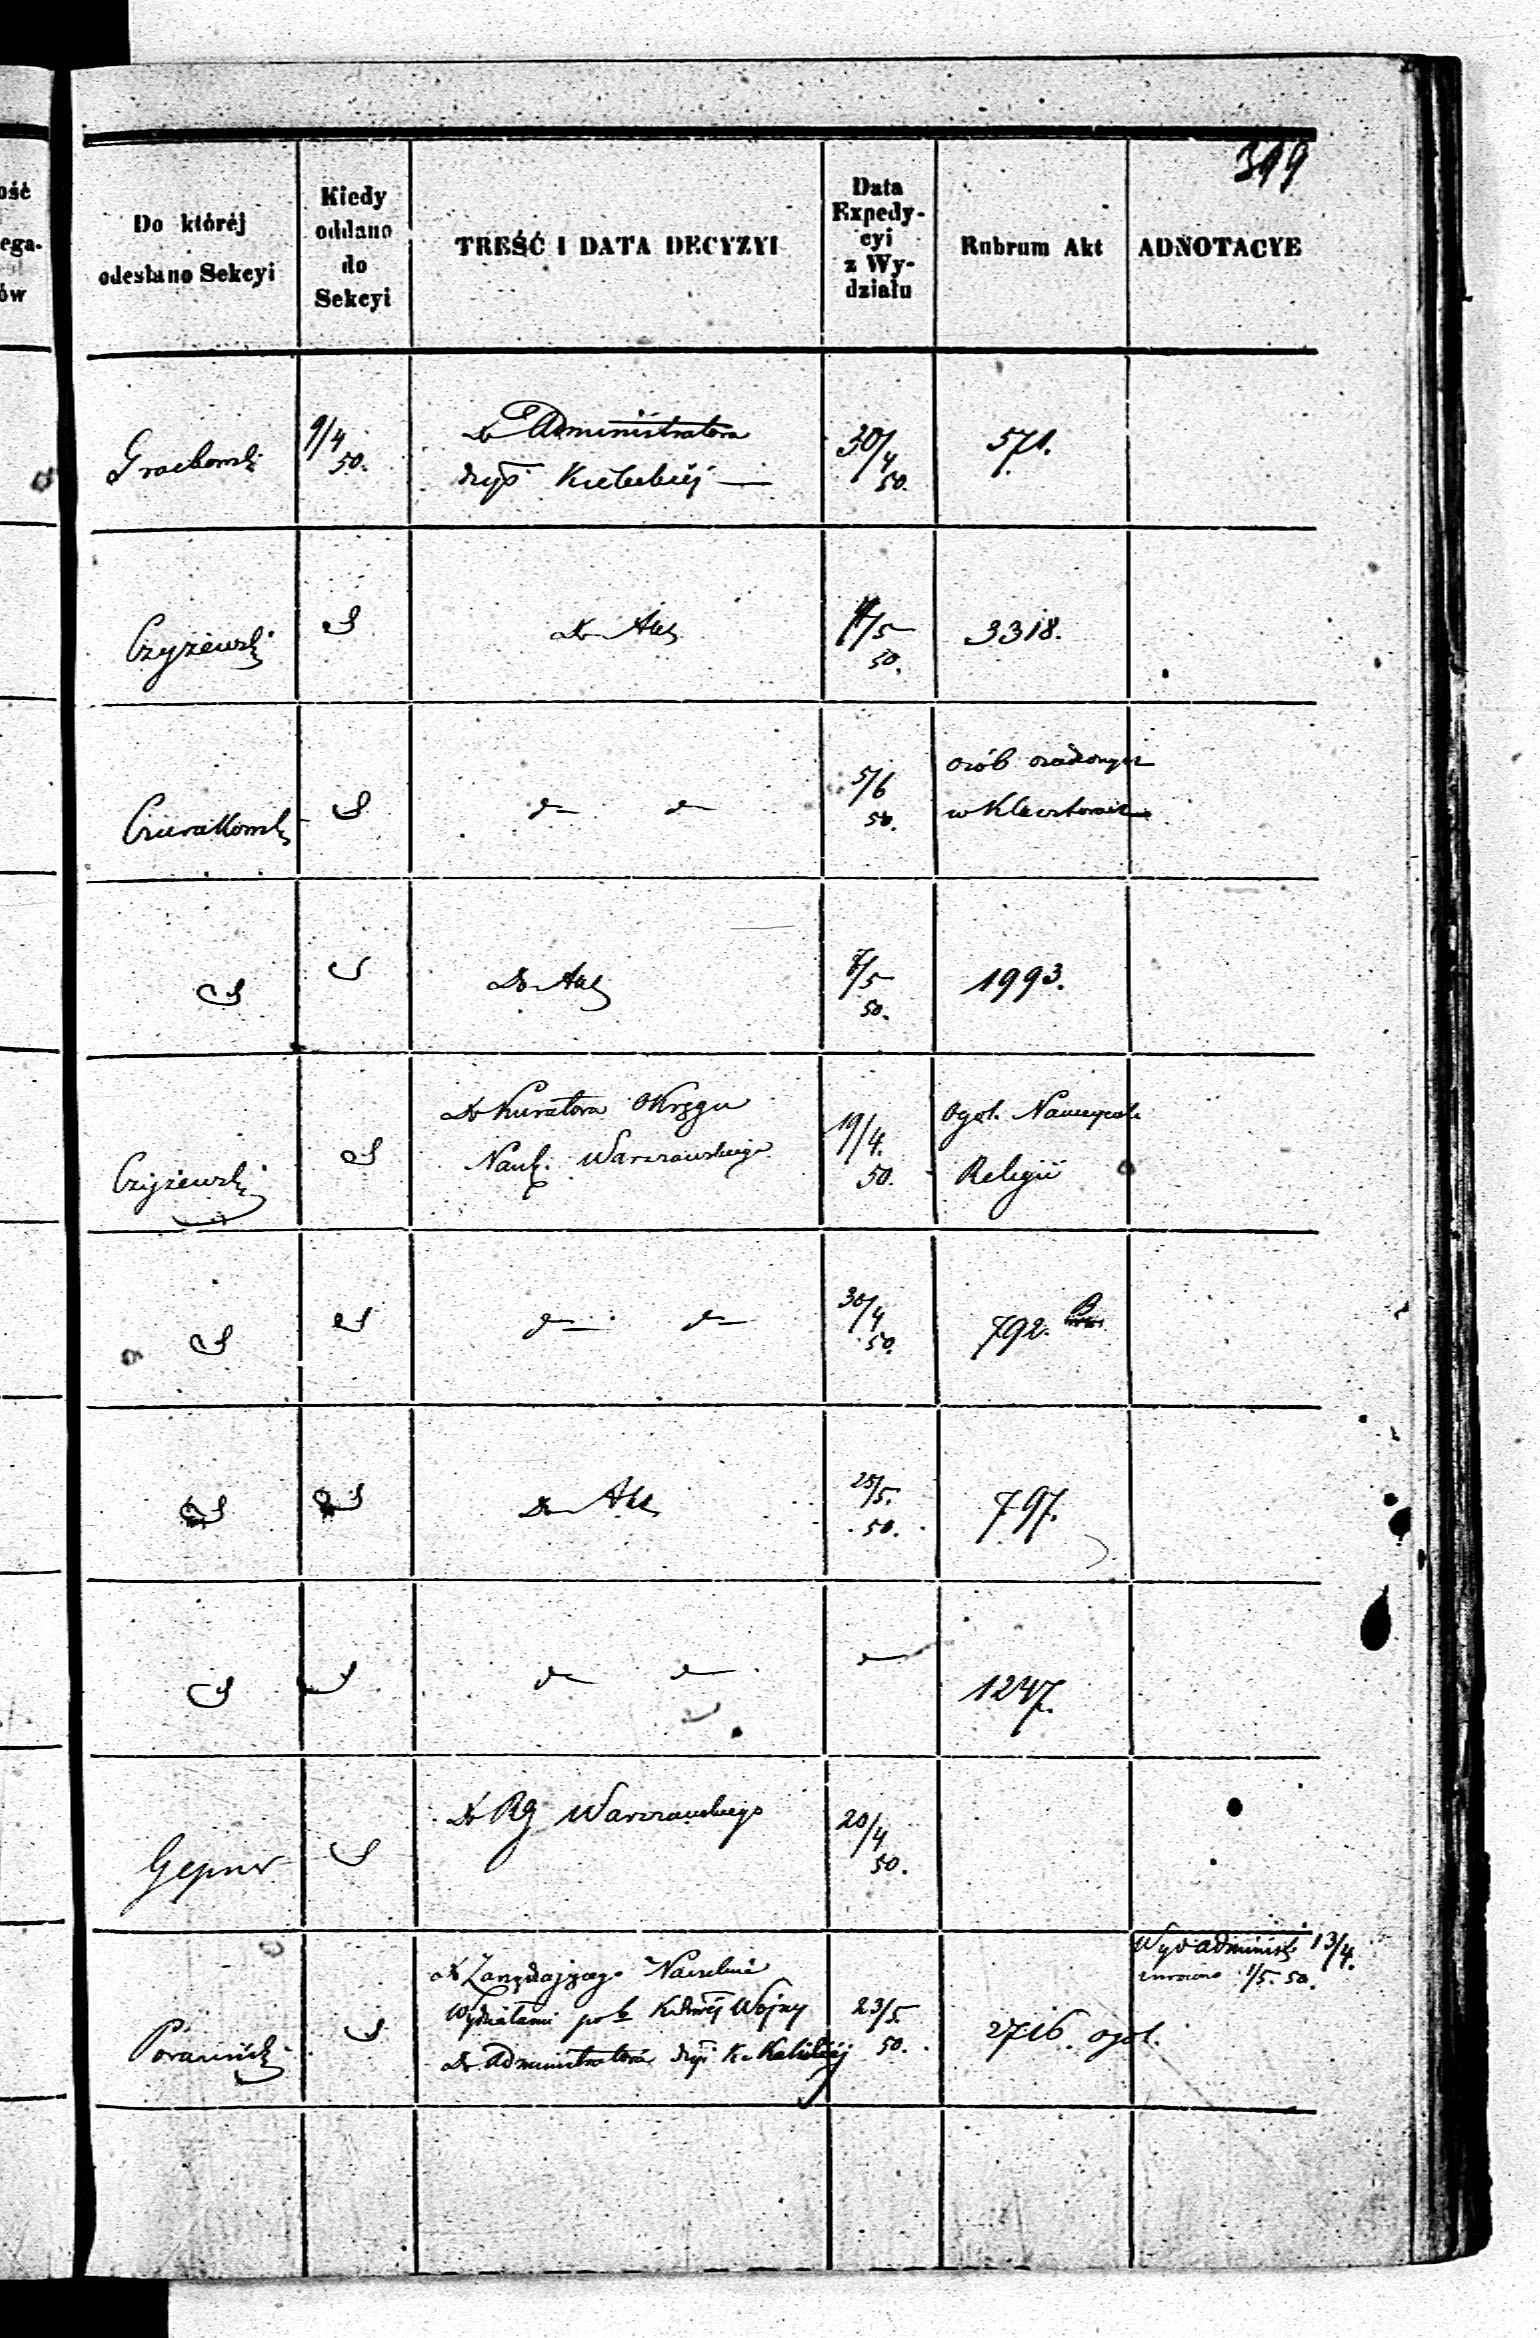 319
ość
ega-
ów
Do któréj
odesłano Sekcyi
Kiedy
oddano
do
Sekcyi
TREŚĆ I DATA DECYZYI
Data
Expedy-
cyi
z Wy-
działu
Rubrum Akt
ADNOTACYE
Grabowski
9/4
50.
Do Administratora
dyec Kieleckiéj
30/4
50.
571.
Czyżewski
Do Akt
5
50.
3318.
d d
5/6
50.
osób osadzonych
w
Do Akt
/5
50.
1993.
Czyżewski
Do Kuratora Okręgu
Nauk. Warszawskiego
19/4.
50.
Ogól. Nauczyciele
Religii
d d
30/4
50.
792. B
Do Akt
25/5.
50.
797.
d d
d
1247.
Gepner
Do RG Warszawskiego
20/4
50.
Do Zarządzającego Naczelnie
Wydziałami Wojny
Do Administratora dyec Kaliskiéj
23/5.
50.
2716. ogól.
Wyd administ 13/4.
zwrócono 1/5. 50.